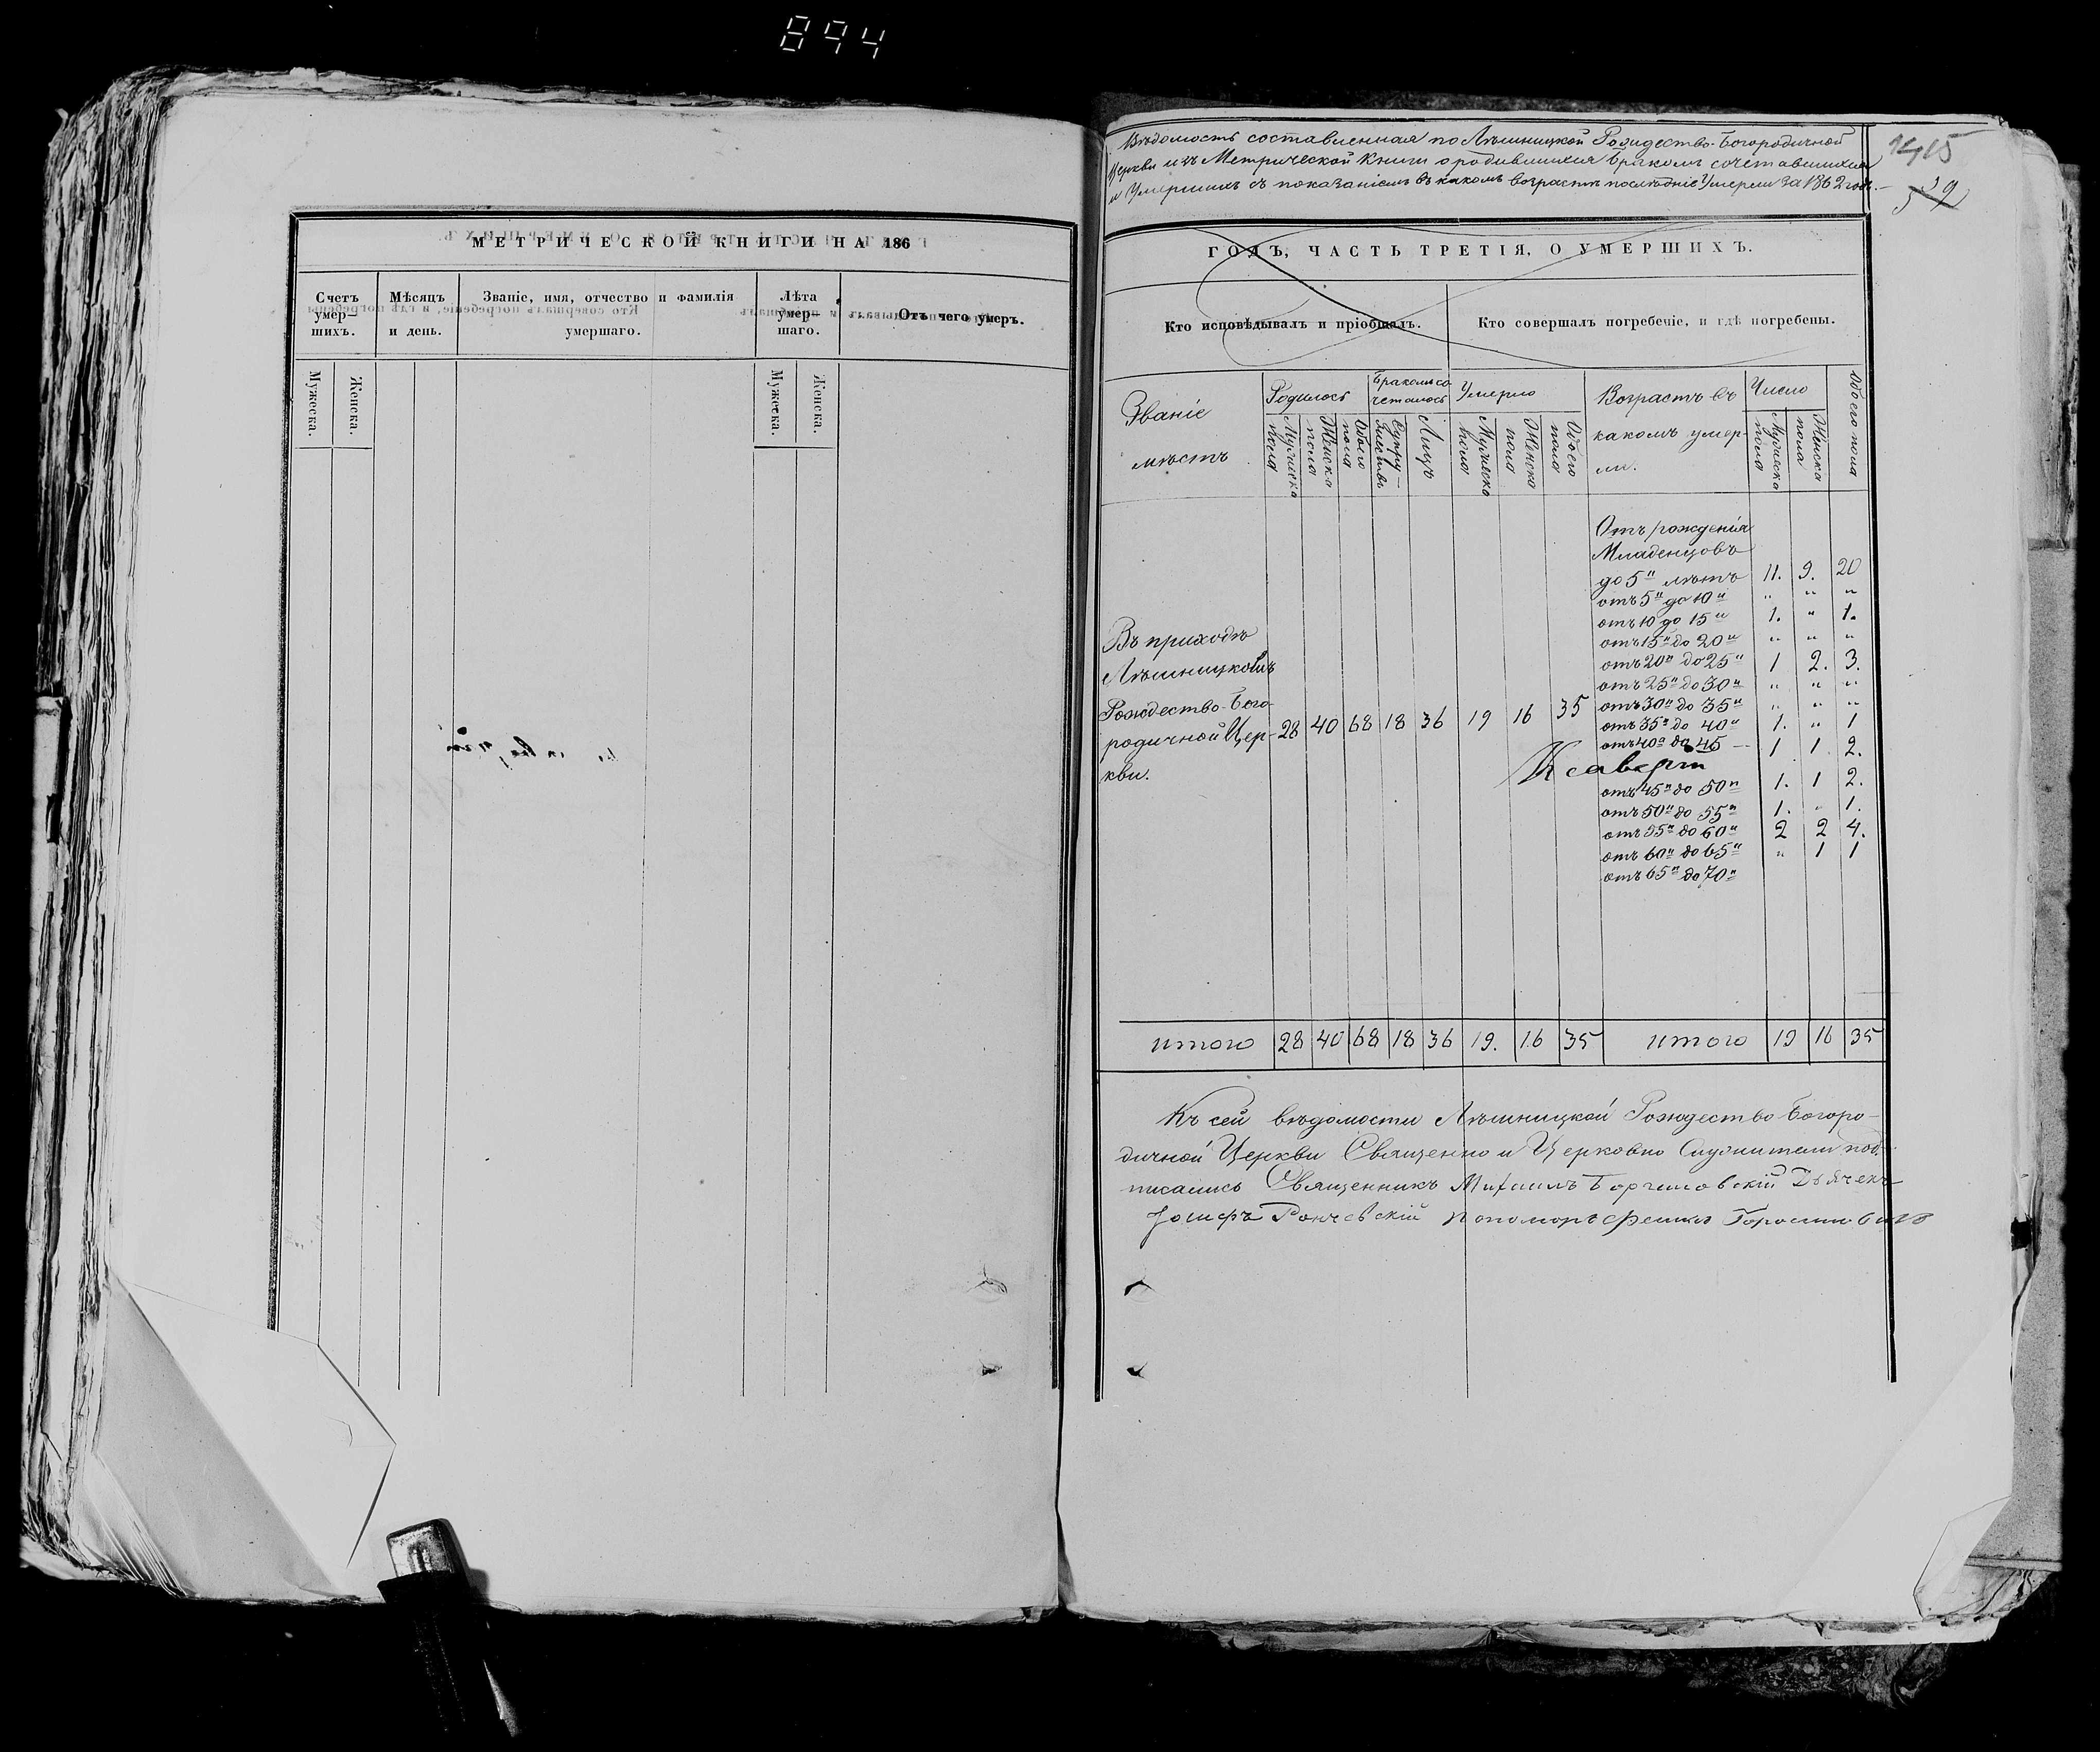 894
МЕТРИЧЕСКОЙ КНИГИ НА 186
Счетъ умер— шихъ.
Мѣсяцъ и день.
Званіе, имя, отчество и фамилія умершаго.
Лѣта умер- шаго.
Отъ чего умеръ.
Мужеска.
Женска.
Мужеска.
Женска.
1415
59
Вѣдомость составленная по Лѣшницкой Рождество-Богородичной
Церкви изъ Метрической Книги о родившихся бракомъ сочетавшихся
и Умершихъ съ показаніемъ въ какомъ возрастѣ послѣдніе Умерли За 1862 годъ.
ГОДЪ, ЧАСТЬ ТРЕТІЯ, О УМЕРШИХЪ.
Кто исповѣдывалъ и пріобщалъ.
Кто совершалъ погребеніе, и гдѣ погребены.
Званіе мѣстъ
Родилось
Бракомъ со четалось
Умерло
Возрастъ въ какомъ умер- ли.
Число
Обоего пола
Мужеска пола
Женска пола
Обоего пола
Супру— жествъ
Лицъ
Мужеско пола
Женско пола
Обоего пола
Мужеска пола
Женска пола
Отъ рождения
Младенцовъ
до 5" лѣтъ 11. 9. 20
отъ 5" до 10" " " "
отъ 10 до 15" 1. " 1.
отъ 15" до 20" " " "
отъ 20" до 25" 1 2. 3.
отъ 25" до 30" " " "
отъ 30" до 35" " " "
отъ 35" до 40" 1. " 1
отъ 40" до 45 — 1 1 2.
отъ 45" до 50" 1. 1 2.
отъ 50" до 55" 1. " 1.
отъ 55" до 60" 2 2 4.
отъ 60" до 65" " 1 1
отъ 65" до 70"
Въ приходѣ
Лѣшницкой
Рождество-Бого-
родичной Цер- 28 40 68 18 36 19 16 35
кви.
итого 28 40 68 18 36 19. 16 35 итого 19 16 35
Къ сей вѣдомости Лѣшницкой Рождество Богоро-
дичной Церкви Священно и Церковно Служители под-
писались Священникъ Михаилъ Дьячекъ
Іосифъ Пономоръ